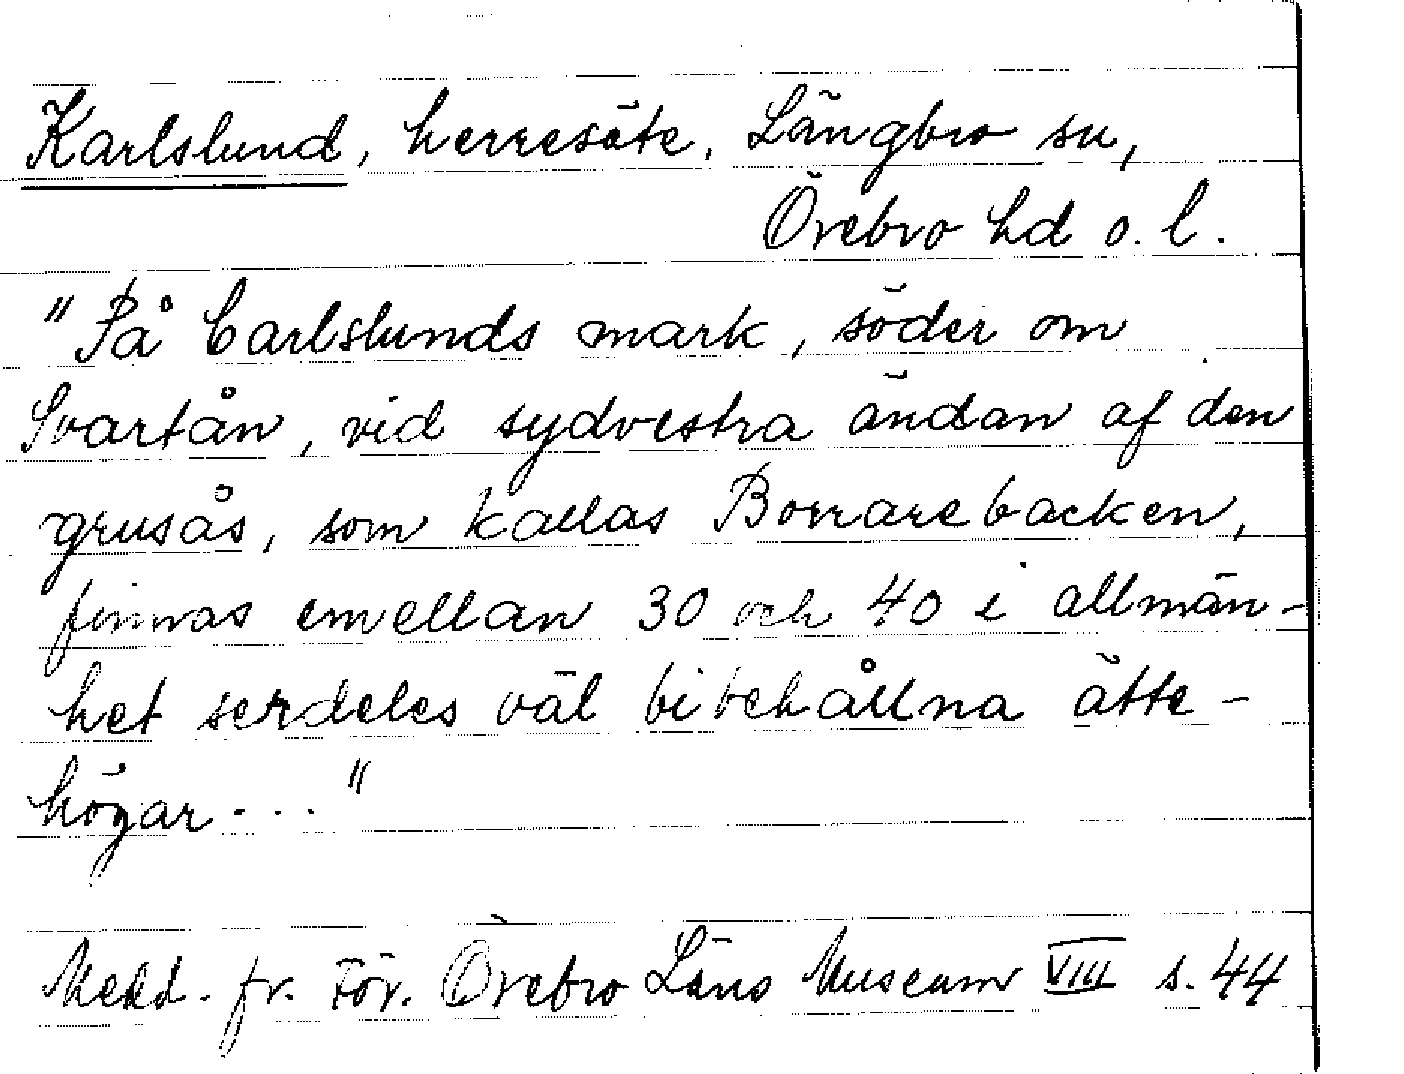 Karlslund, herresäte, Längbro sn,
Örebro hd o. l.
"På Carlslunds mark, söder om
Svartån, vid sydvestra ändan af den
grusås, som kallas Borrarebacken,
finnas emellan 30 och 40 i allmän-
het serdeles väl bibehållna ätte-
högar..."
Medd. fr. För. Örebro Läns Museum VIII s. 44